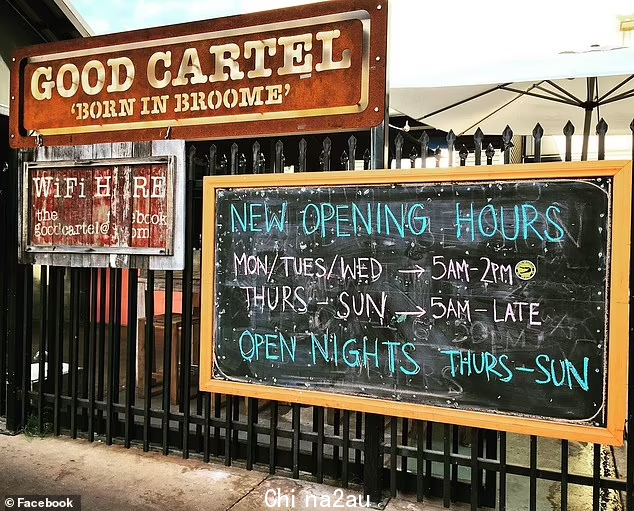 GOOD CARTEL
'BORN IN BROOME'
WiFi H RE
the book
goodcartel@ om
NEW OPENING HOURS
MON/TUES/WED → 5AM-2PM
THURS-SUN → 5AM-LATE
OPEN NIGHTS THURS-SUN
© Facebook
Chi na2au